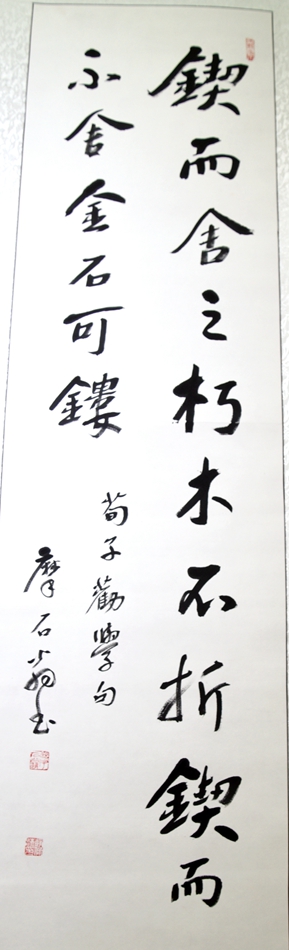 鍥而舍之朽木不折鍥而
不舍金石可鏤
荀子勸學句
摩石翁書